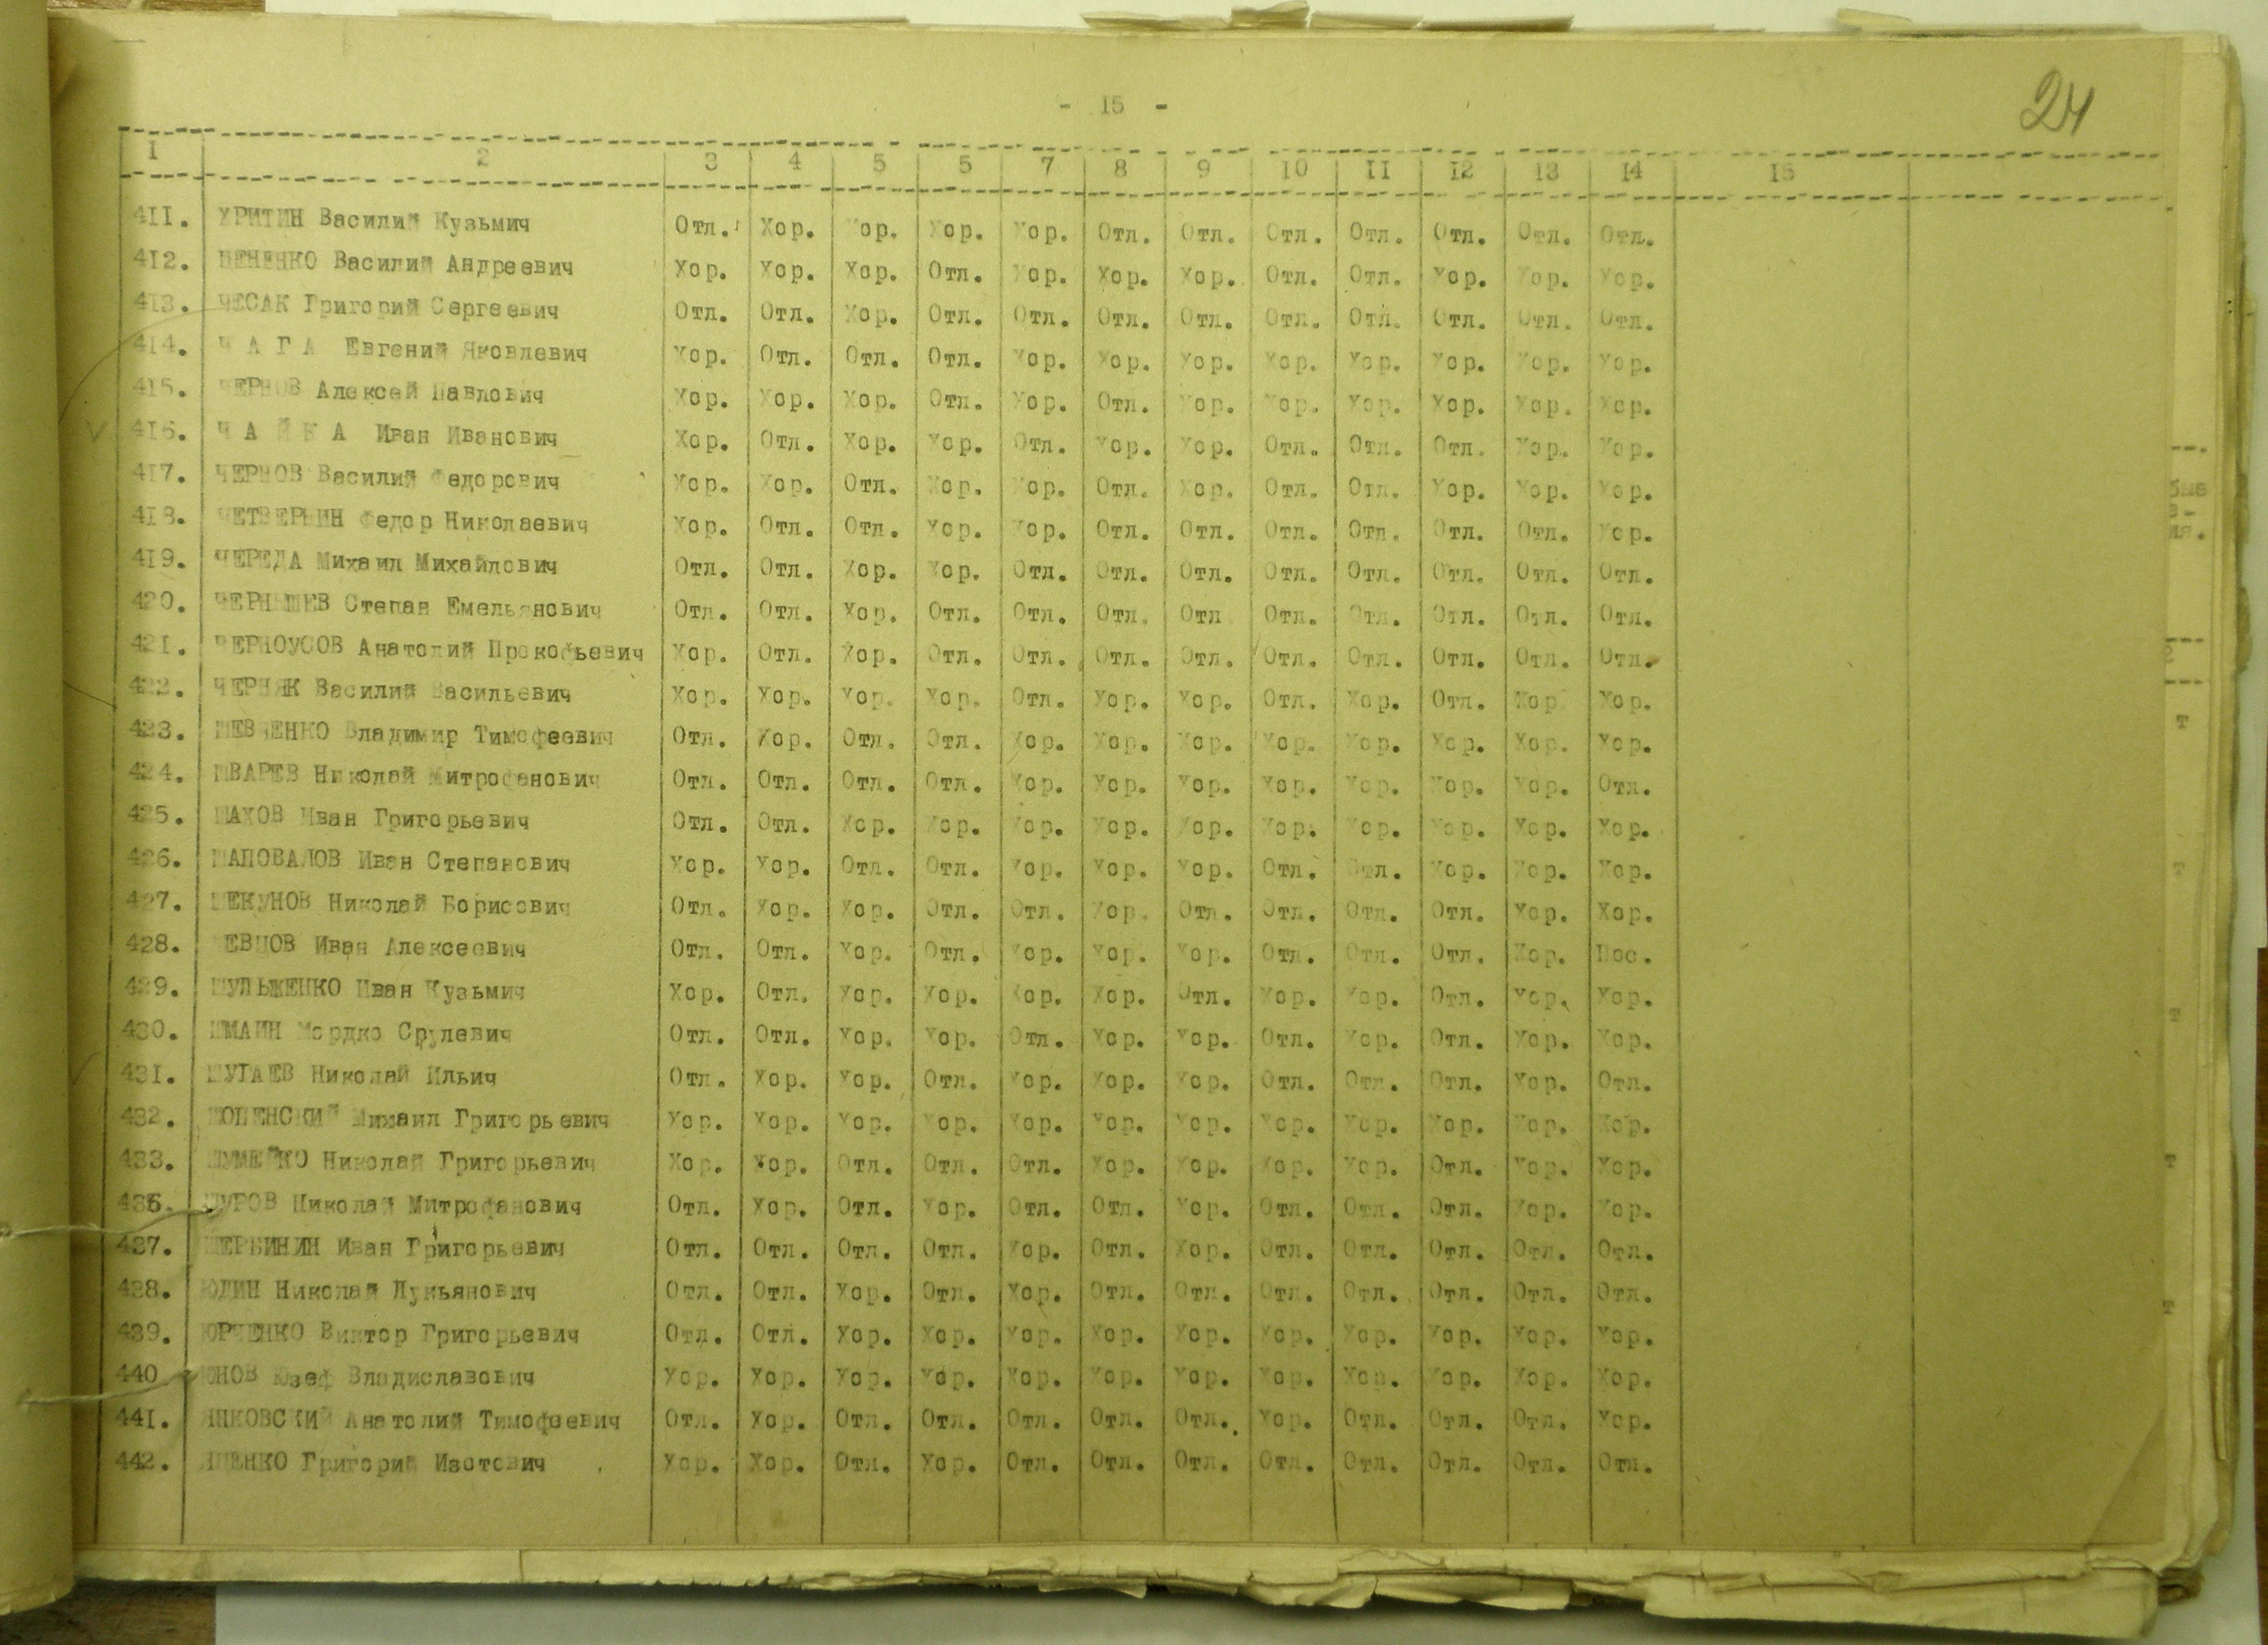 - 15 -
24
I 2 3 4 5 5 7 8 9 10 II I2 I3 I4 I5
4II. ХРИТИН Василий Кузьмич Отл. Хор. Хор. Хор. Хор. Отл. Отл. Отл. Отл. Отл. Отл. Отл.
4I2. Василий Андреевич Хор. Хор. Хор. Отл. Хор. Хор. Хор. Отл. Отл. Хор. Хор. Хор.
4I3. ЧЕСАК Григорий Сергеевич Отл. Отл. Хор. Отл. Отл. Отл. Отл. Отл. Отл. Отл. Отл. Отл.
4I4. Ч А Г А Евгений Яковлевич Хор. Отл. Отл. Отл. Хор. Хор. Хор. Хор. Хор. Хор. Хор. Хор.
4I5. ЧЕРНОВ Алексей Павлович Хор. Хор. Хор. Отл. Хор. Отл. Хор. Хор. Хор. Хор. Хор. Хор.
4I6. Ч А Й К А Иван Иванович Хор. Отл. Хор. Хор. Отл. Хор. Хор. Отл. Отл. Отл. Хор. Хор.
4I7. ЧЕРНОВ Василий Федорович Хор. Хор. Отл. Хор. Хор. Отл. Хор. Отл. Отл. Хор. Хор. Хор.
4I8. ЧЕТВЕРНИН Федор Николаевич Хор. Отл. Отл. Хор. Хор. Отл. Отл. Отл. Отл. Отл. Отл. Хор.
4I9. ЧЕРЕДА Михаил Михайлович Отл. Отл. Хор. Хор. Отл. Отл. Отл. Отл. Отл. Отл. Отл. Отл.
420. ЧЕРНЫШЕВ Степан Емельянович Отл. Отл. Хор. Отл. Отл. Отл. Отл Отл. Отл. Отл. Отл. Отл.
42I. ЧЕРНОУСОВ Анатолий Прокофьевич Хор. Отл. Хор. Отл. Отл. Отл. Отл. Отл. Отл. Отл. Отл. Отл.
422. ЧЕРНЯК Василий Васильевич Хор. Хор. Хор. Хор. Отл. Хор. Хор. Отл. Хор. Отл. Хор. Хор.
423. ШЕВЧЕНКО Владимир Тимофеевич Отл. Хор. Отл. Отл. Хор. Хор. Хор. Хор. Хор. Хор. Хор. Хор.
424. ШВАРЕВ Николай Митрофанович Отл. Отл. Отл. Отл. Хор. Хор. Хор. Хор. Хор. Хор. Хор. Отл.
425. ШАХОВ Иван Григорьевич Отл. Отл. Хор. Хор. Хор. Хор. Хор. Хор. Хор. Хор. Хор. Хор.
426. ШАПОВАЛОВ Иван Степанович Хор. Хор. Отл. Отл. Хор. Хор. Хор. Отл. Отл. Хор. Хор. Хор.
427. ШЕКУНОВ Николай Борисович Отл. Хор. Хор. Отл. Отл. Хор. Отл. Отл. Отл. Отл. Хор. Хор.
428. ШЕВЦОВ Иван Алексеевич Отл. Отл. Хор. Отл. Хор. Хор. Хор. Отл. Отл. Отл. Хор. Пос.
429. ШУЛЬЖЕНКО Иван Кузьмич Хор. Отл. Хор. Хор. Хор. Хор. Отл. Хор. Хор. Отл. Хор. Хор.
430. ШМАИН Мордко Срулевич Отл. Отл. Хор. Хор. Отл. Хор. Хор. Отл. Хор. Отл. Хор. Хор.
43I. ШУТАЕВ Николай Ильич Отл. Хор. Хор. Отл. Хор. Хор. Хор. Отл. Отл. Отл. Хор. Отл.
432. Михаил Григорьевич Хор. Хор. Хор. Хор. Хор. Хор. Хор. Хор. Хор. Хор. Хор. Хор.
433. ШУМЕЙКО Николай Григорьевич Хор. Хор. Отл. Отл. Отл. Хор. Хор. Хор. Хор. Отл. Хор. Хор.
436. Николай Митрофанович Отл. Хор. Отл. Хор. Отл. Отл. Хор. Отл. Отл. Отл. Хор. Хор.
437. ЩЕРБИНИН Иван Григорьевич Отл. Отл. Отл. Отл. Хор. Отл. Хор. Отл. Отл. Отл. Отл. Отл.
438. ЮДИН Николай Лукьянович Отл. Отл. Хор. Отл. Хор. Отл. Отл. Отл. Отл. Отл. Отл. Отл.
439. ЮРЧЕНКО Виктор Григорьевич Отл. Отл. Хор. Хор. Хор. Хор. Хор. Хор. Хор. Хор. Хор. Хор.
440 Юзеф Владиславович Хор. Хор. Хор. Хор. Хор. Хор. Хор. Хор. Хор. Хор. Хор. Хор.
44I. ЯНКОВСКИЙ Анатолий Тимофеевич Отл. Хор. Отл. Отл. Отл. Отл. Отл. Хор. Отл. Отл. Отл. Хор.
442. ЯЦЕНКО Григорий Изотович Хор. Хор. Отл. Хор. Отл. Отл. Отл. Отл. Отл. Отл. Отл. Отл.